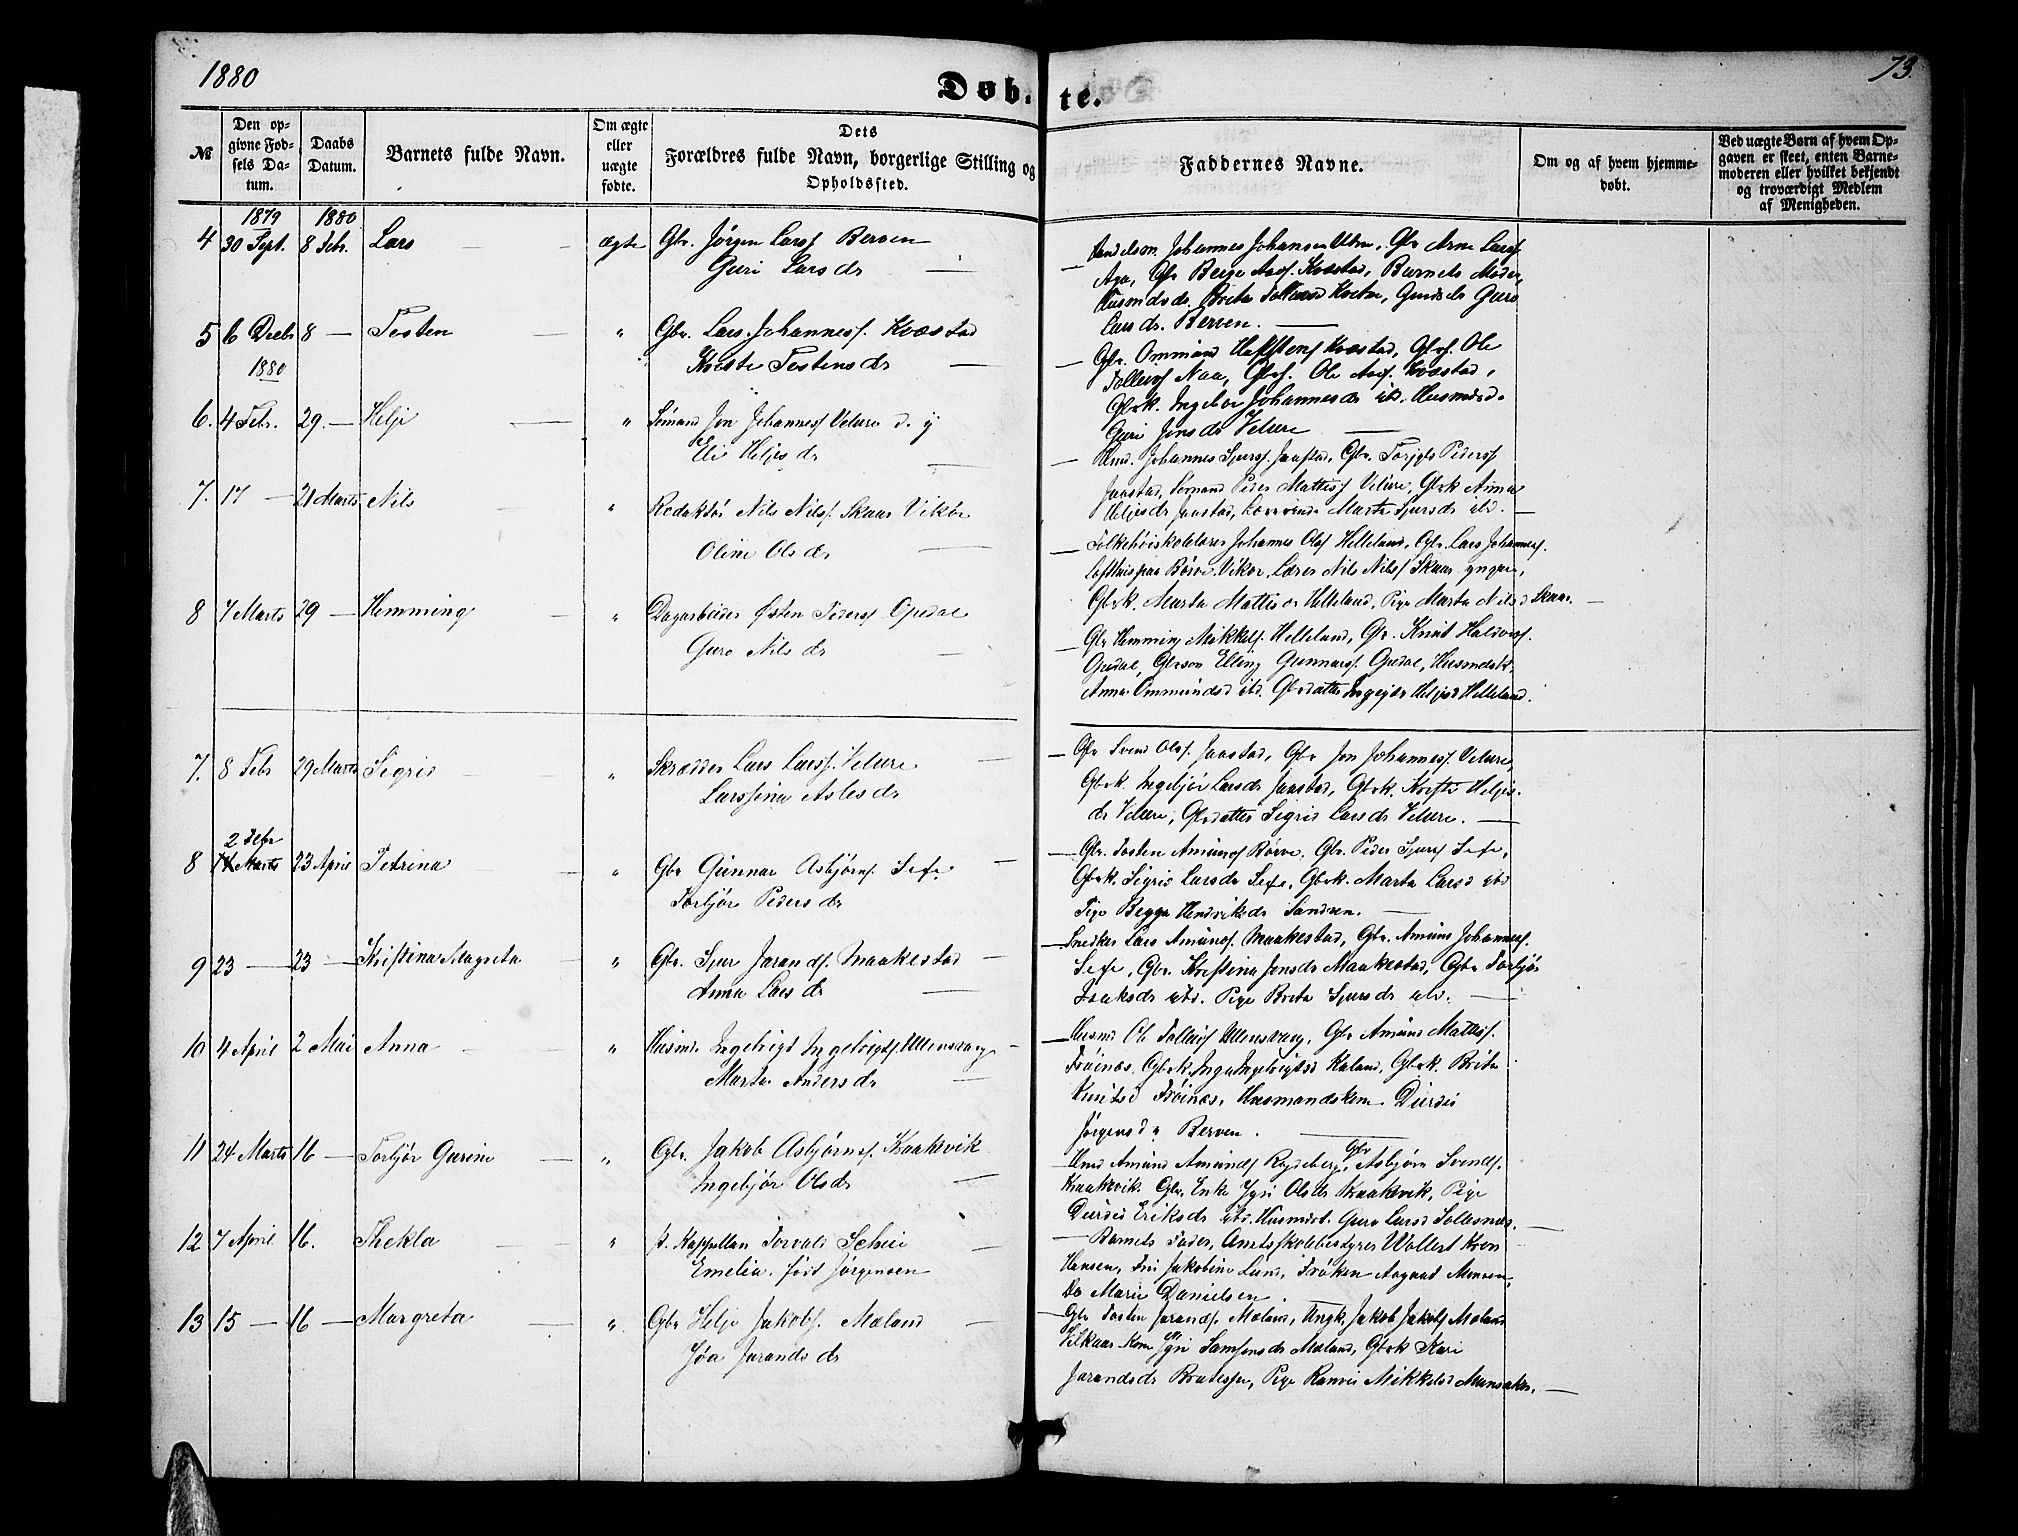 1880
73.
Döbte.
№
Den opgivne Fødsels Datum.
Daabs Datum.
Barnets fulde Navn.
Om ægte eller uægte fødte.
Dets
Forældres fulde Navn, borgerlige Stilling og
Opholdssted.
Faddernes Navne.
Om og af hvem hjemmedobt.
Ved uægte Børn af hvem Opgaven er skeet, enten Barnemoderen eller hvilket bekjendt og troværdigt Medlem af Menigheden.
1879 1880
4 30 Sept. 8 Febr. Lars — ægte Gbr. Jørgen Larss Berven
Guri Larsdr —
Johannes Johansen Utne, Gbr Arne Larss
Aga, Gbr Kvæstad, Barnets Moder,
Brita Guro
Larsdr. Berven. —
5 6 Decbr 8 — Tosten — " Gbr. Lars Johanness. Kvæstad
Tostensdr —
1880
Gbr. Ommund Kvæstad, Gbrs. Ole
Tolleivs Naa, Gbrs. Ole Kvæstad,
Gbrk. Ingebor Johannesdr ibd.
Guri Jonsdr Velure —
6. 4 Febr. 29. — Helje — " Sømand Jon Johanness Velure d. y
Eli Heljesdr —
Johannes Sjurss. Jaastad, Gbr. Torgils Peders
Jaastad, Sømand Peder Mattiss Velure, Gbrk Anna
Heljesdr Jaastad, Marta Sjursdr ibd. —
7. 17 — 21 Marts Nils — " Redaktør Nils Nilss. Skaar Vikør
Oline Olsdr —
— Folkehøiskolelærer Johannes Olss Helleland, Gbr. Lars Johanness.
Børve Vikør, Lærer Nils Nilss Skaar yngre,
Gbrk. Marta Helleland, Pige Marta Nilsd Skaar. —
8 7 Marts 29 — Hemming — " Dagarbeider Østen Peders Opedal
Guro Nilsdr —
— Gbr Hemming Mikkels. Helleland, Gbr. Knut Haldors.
Opedal, Gbrsøn Elling Gunnars. Opedal,
Anna Ommundsd ibd. Gbrdatter Heljesd Helleland.
7. 8 Febr 29 Marts Sigrid — " Skrædder Lars Larss. Velure —
Larssina Aslesdr
— Gbr Svend Olss. Jaastad, Gbr Jon Johanness. Velure,
Gbrk. Ingebjør Larsdr Jaastad, Gbrk. Heljes-
dr Velure, Gbrdatter Sigrid Larsdr Velure. —
2 Febr
8 Marts 23 April Petrina — " Gbr Gunnar Asbjørns. Sexe —
Torbjør Pedersdr
— Gbr. Tosten Amunds Børve, Gbr. Peder Sjurs Sexe,
Gbrk. Sigrid Larsdr Sexe, Gbrk. Marta Larsd ibd
Pige Hendriksdr Sandven. —
9 23 — 23 — Kristina Magreta — " Gbr. Sjur Jarands. Maakestad —
Anna Larsdr —
— Snedker Lars Amunds. Maakestad, Gbr. Amund Johanness.
Sexe, Gbr. Kristina Jonsdr Maakestad, Gbr Torbjør
Isaksdr ibd. Pige Brita Sjursdr ibd. —
10 4 April 2 Mai Anna — " Husmd. Ingebrigt Ingebrigts. Ullensvang —
Marta Andersdr —
— Husmd Ole Tolleivs Ullensvang, Gbr Amund Mattiss.
Frøinæs, Gbrk. Inga Ingebrigtsd Kaland, Gbrk. Brita
Knutsd Frøinæs, Husmandskone Durdei
Jørgensdr Berven. —
11 24 Marts 16 — Torbjør Gurine — " Gbr. Jakob Asbjørns. Kraakevik
Ingebjør Olsdr —
Amund Amunds Gbr Asbjørn Svends.
Kraakevik. Gbr. Enke Olsdr Kraakevik, Pige
Durdei Eriksdr ibd. Guro Larsd —
12 7 April 16. Thekla — " p. Kappellan Torvald Schei —
Emelia, født Jørgensen
— Barnets Fader, Amtsskolebestyrer Wollert Kron
Hansen, Fru Jakobine Lund, Frøken Monsen,
Do Marie Danielsen.
13 15 — 16 — Margreta — " Gbr Helje Jakobs. Mæland —
Jøa Jarandsdr
— Gbr Tosten Jarands. Mæland, Ungk. Jakob Jakobs Mæland
Samsonsdr Mæland, Gbrk Kari
Jarandsdr Pige Ranvei Mikkelsd —